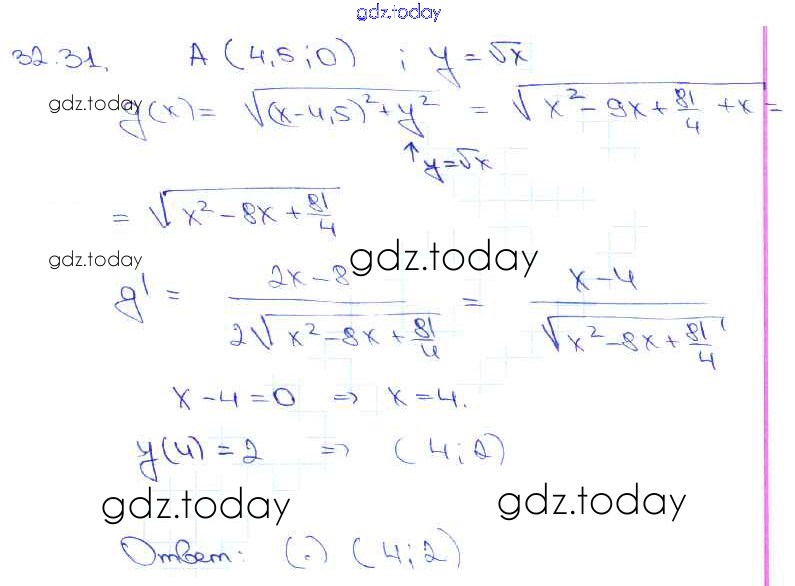 gdz.today
32.31. A (4,5;0) ; y = √x
gdz.today
g(x) = √((x-4,5)² + y²) = √(x² - 9x + 81/4 + x) =
↑ y=√x
= √(x² - 8x + 81/4)
gdz.today
gdz.today
g' = (2x-8)/(2√(x² - 8x + 81/4)) = (x-4)/(√(x² - 8x + 81/4))
x-4=0 ⇒ x=4.
y(4) = 2 ⇒ (4;2)
gdz.today
gdz.today
Ответ: (·) (4;2)